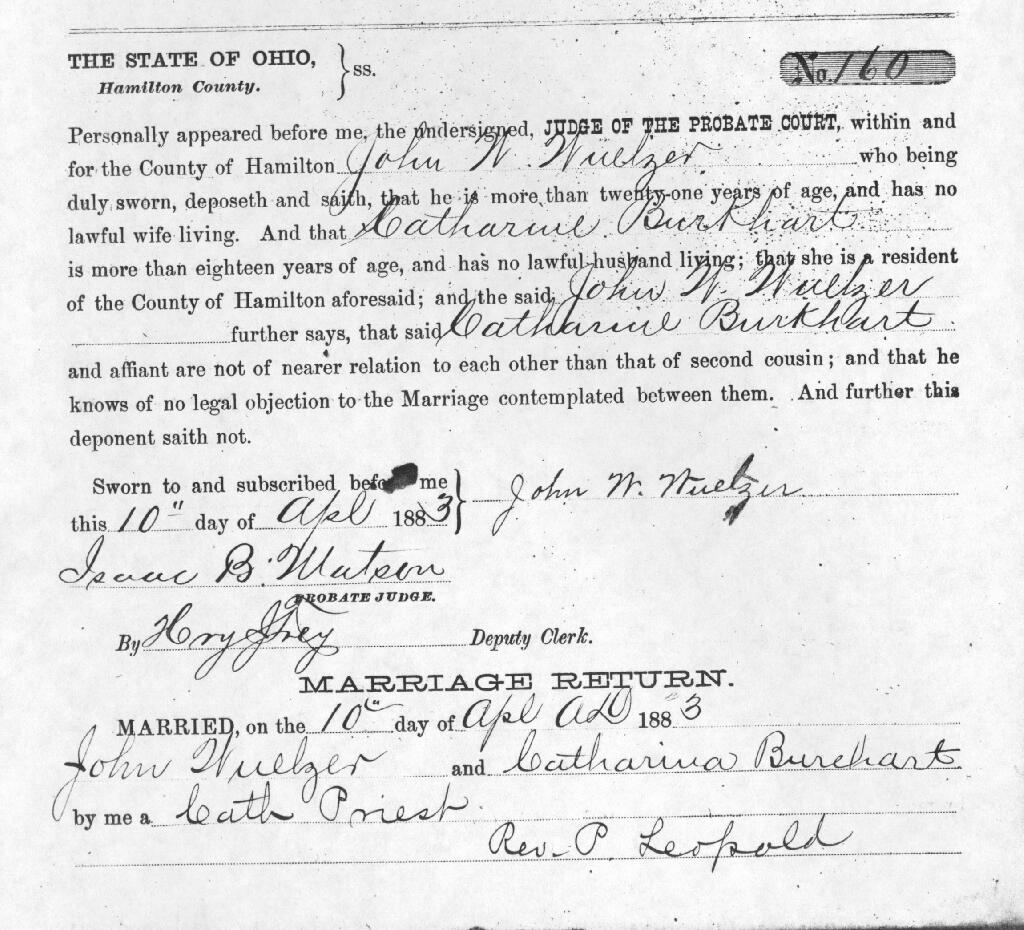 THE STATE OF OHIO, } ss.
Hamilton County.
No. 160
Personally appeared before me, the undersigned, JUDGE OF THE PROBATE COURT, within and
for the County of Hamilton John W. Wuelzer who being
duly sworn, deposeth and saith, that he is more than twenty-one years of age, and has no
lawful wife living. And that Catharine Burkhart
is more than eighteen years of age, and has no lawful husband living; that she is a resident
of the County of Hamilton aforesaid; and the said John W. Wuelzer
further says, that said Catharine Burkhart
and affiant are not of nearer relation to each other than that of second cousin; and that he
knows of no legal objection to the Marriage contemplated between them. And further this
deponent saith not.
Sworn to and subscribed before me } John W. Wuelzer
this 10" day of Apl 1883
Isaac B. Matson
PROBATE JUDGE.
By Hry Frey Deputy Clerk.
MARRIAGE RETURN.
MARRIED, on the 10th day of Apl AD 1883
John Wuelzer and Catharina Burchart
by me a Cath Priest
Rev. P. Leopold